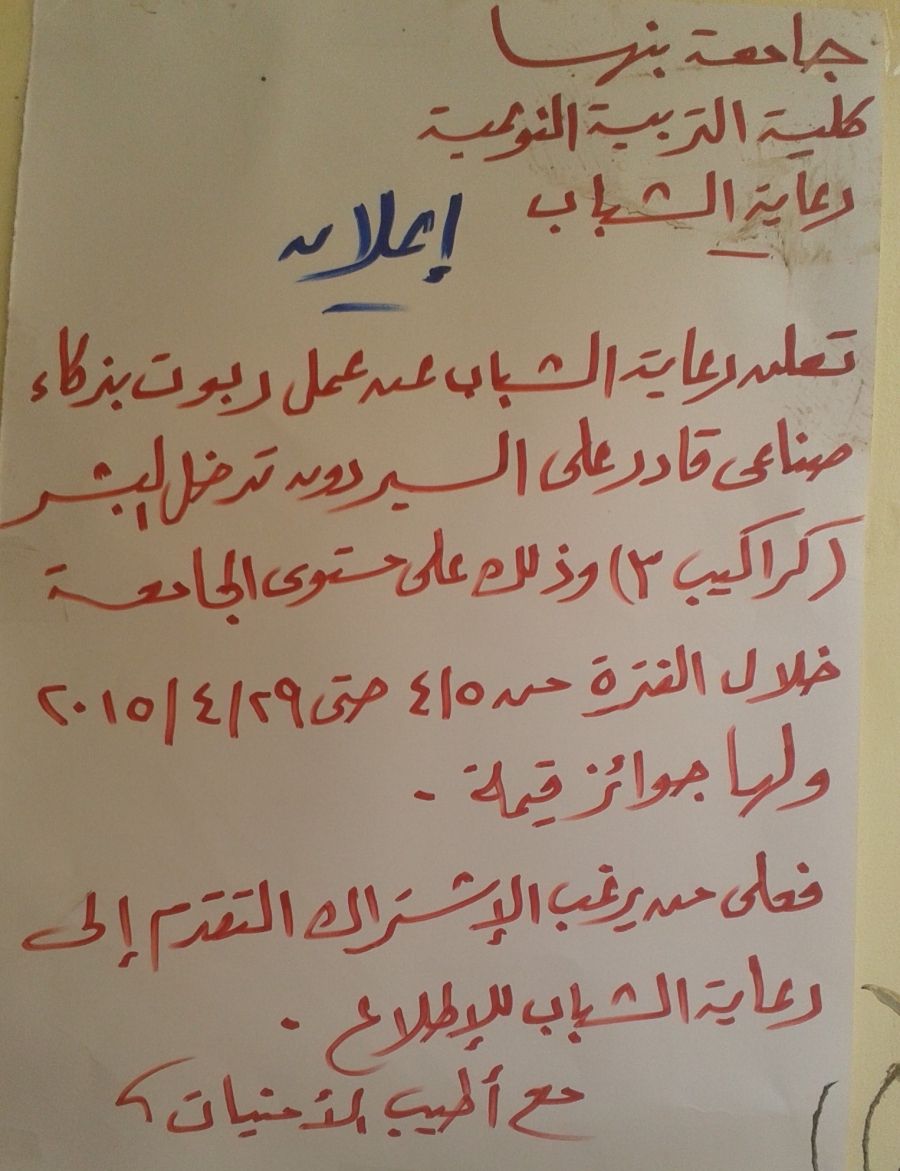 جامعة بنها
كلية التربية النوعية
رعاية الشباب
إعلان
تعلن رعاية الشباب عن عمل ربوت بذكاء
صناعى قادر على السير دون تدخل البشر
(كراكيب ٣) وذلك على مستوى الجامعة
خلال الفترة من ٤/٥ حتى ٢٠١٥/٤/٢٩
ولها جوائز قيمة .
فعلى من يرغب الإشتراك التقدم إلى
رعاية الشباب للإطلاع .
مع أطيب الأمنيات ،